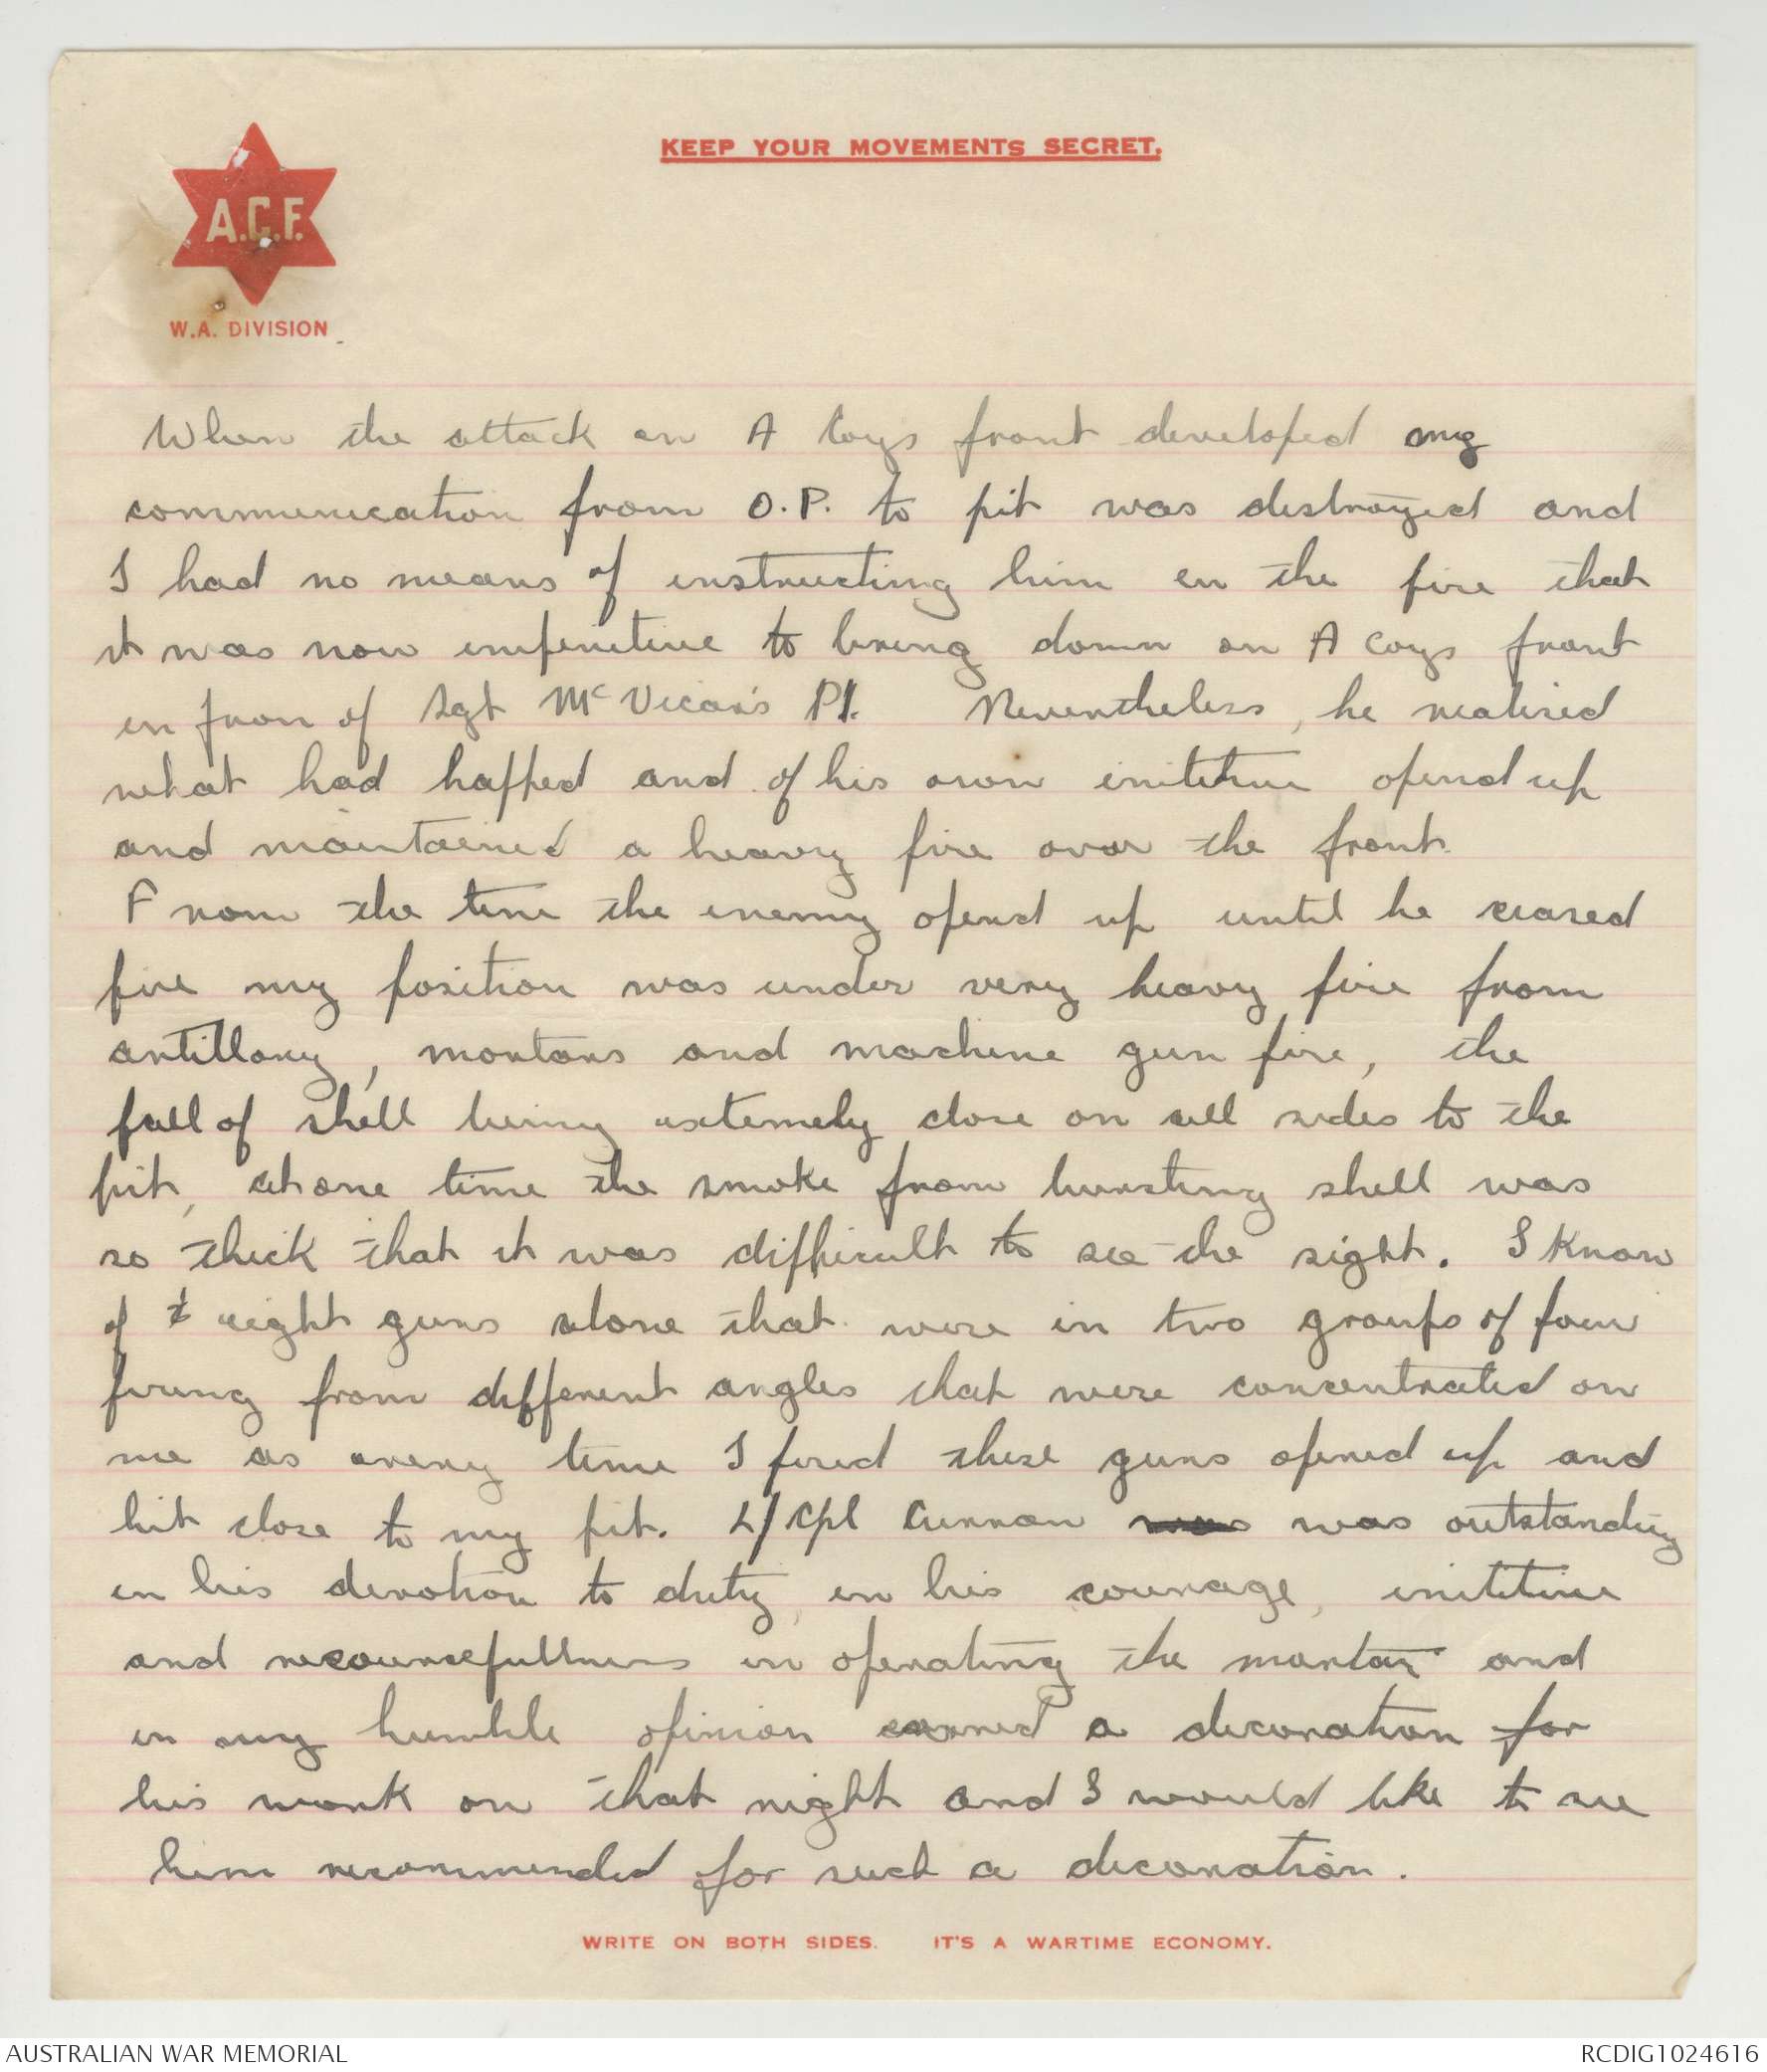 KEEP YOUR MOVEMENTS SECRET.
A.C.F.
W.A. DIVISION
When the attack on A Coys front developed my
communication from O.P. to pit was destroyed and
I had no means of instructing him en the fire that
it was now imperitive to bring down on A Coys front
in fron of Sgt McVicar's Pl. Nevertheless, he realised
what had happed and of his own inititive opend up
and maintained a heavy fire over the front.
From the time the enemy opend up until he ceased
fire my position was under very heavy fire from
artillary, mortars and machine gun fire, the
fall of shell being extemely close on all sides to the
pit, at one time the smoke from bursting shell was
so thick that it was difficult to see the sight. I know
of eight guns alone that were in two groups of four
firing from different angles that were concentrated on
me as every time I fired these guns opened up and
hit close to my pit. L/Cpl Curran was was outstanding
in his devotion to duty, in his courage, inititive
and resourcefullness in operating the mortar and
in my humble opinion earned a decoration for
his work on that night and I would like to see
him recommended for such a decoration.
WRITE ON BOTH SIDES. IT'S A WARTIME ECONOMY.
AUSTRALIAN WAR MEMORIAL
RCDIG1024616